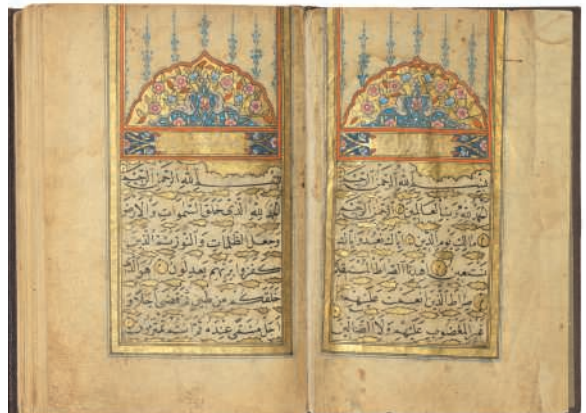 بسم الله الرحمن الرحيم
الحمد لله رب العالمين الرحمن الرحيم
مالك يوم الدين اياك نعبد واياك
نستعين اهدنا الصراط المستقيم
صراط الذين انعمت عليهم
غير المغضوب عليهم ولا الضالين
بسم الله الرحمن الرحيم
الحمد لله الذى خلق السموات والارض
وجعل الظلمات والنور ثم الذين
كفروا بربهم يعدلون هو الذى
خلقكم من طين ثم قضى اجلا و
اجل مسمى عنده ثم انتم تمترون